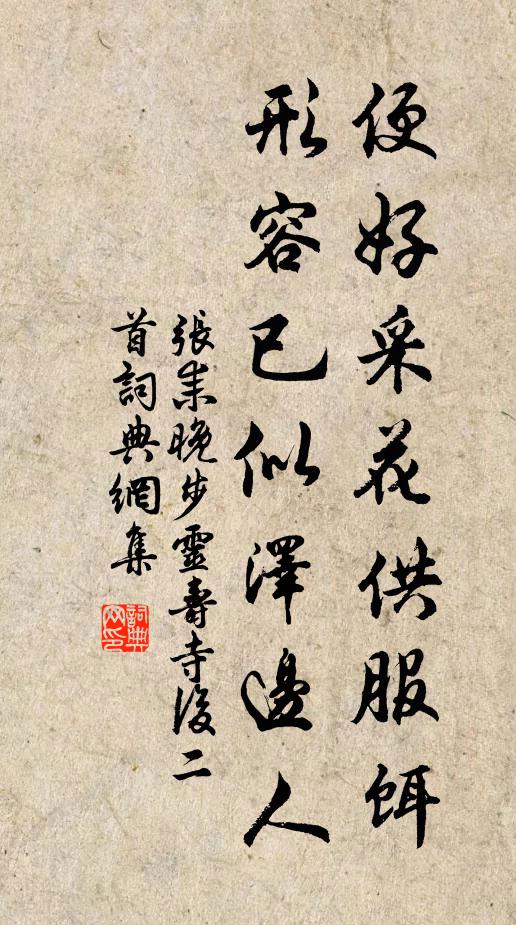 便好采花供服餌
形容已似澤邊人
張耒晚步靈壽寺後二
首詞典網集
詞典
网印